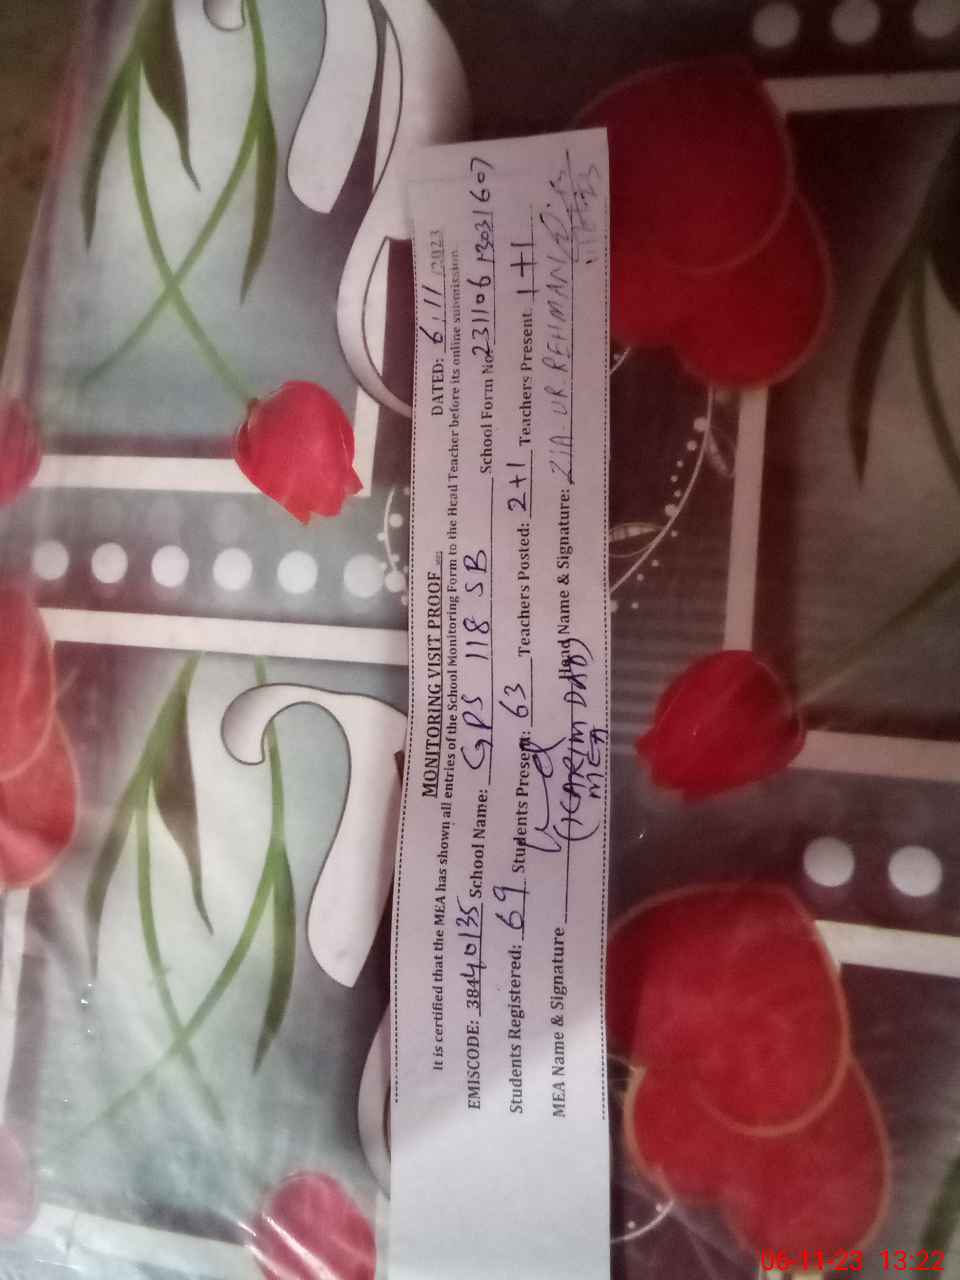 MONITORING VISIT PROOF DATED: 6/11/2023
It is certified that the MEA has shown all entries of the School Monitoring Form to the Head Teacher before its online submission
EMISCODE: 38440135 School Name: GPS 118 SB School Form No: 231106 1303 1607
Students Registered: 69 Students Present: 63 Teachers Posted: 2+1 Teachers Present 1+1
MEA Name & Signature (KARIM DAD) Head Name & Signature: ZIA-UR-REHMAN
MEA
06-11-23 13:22